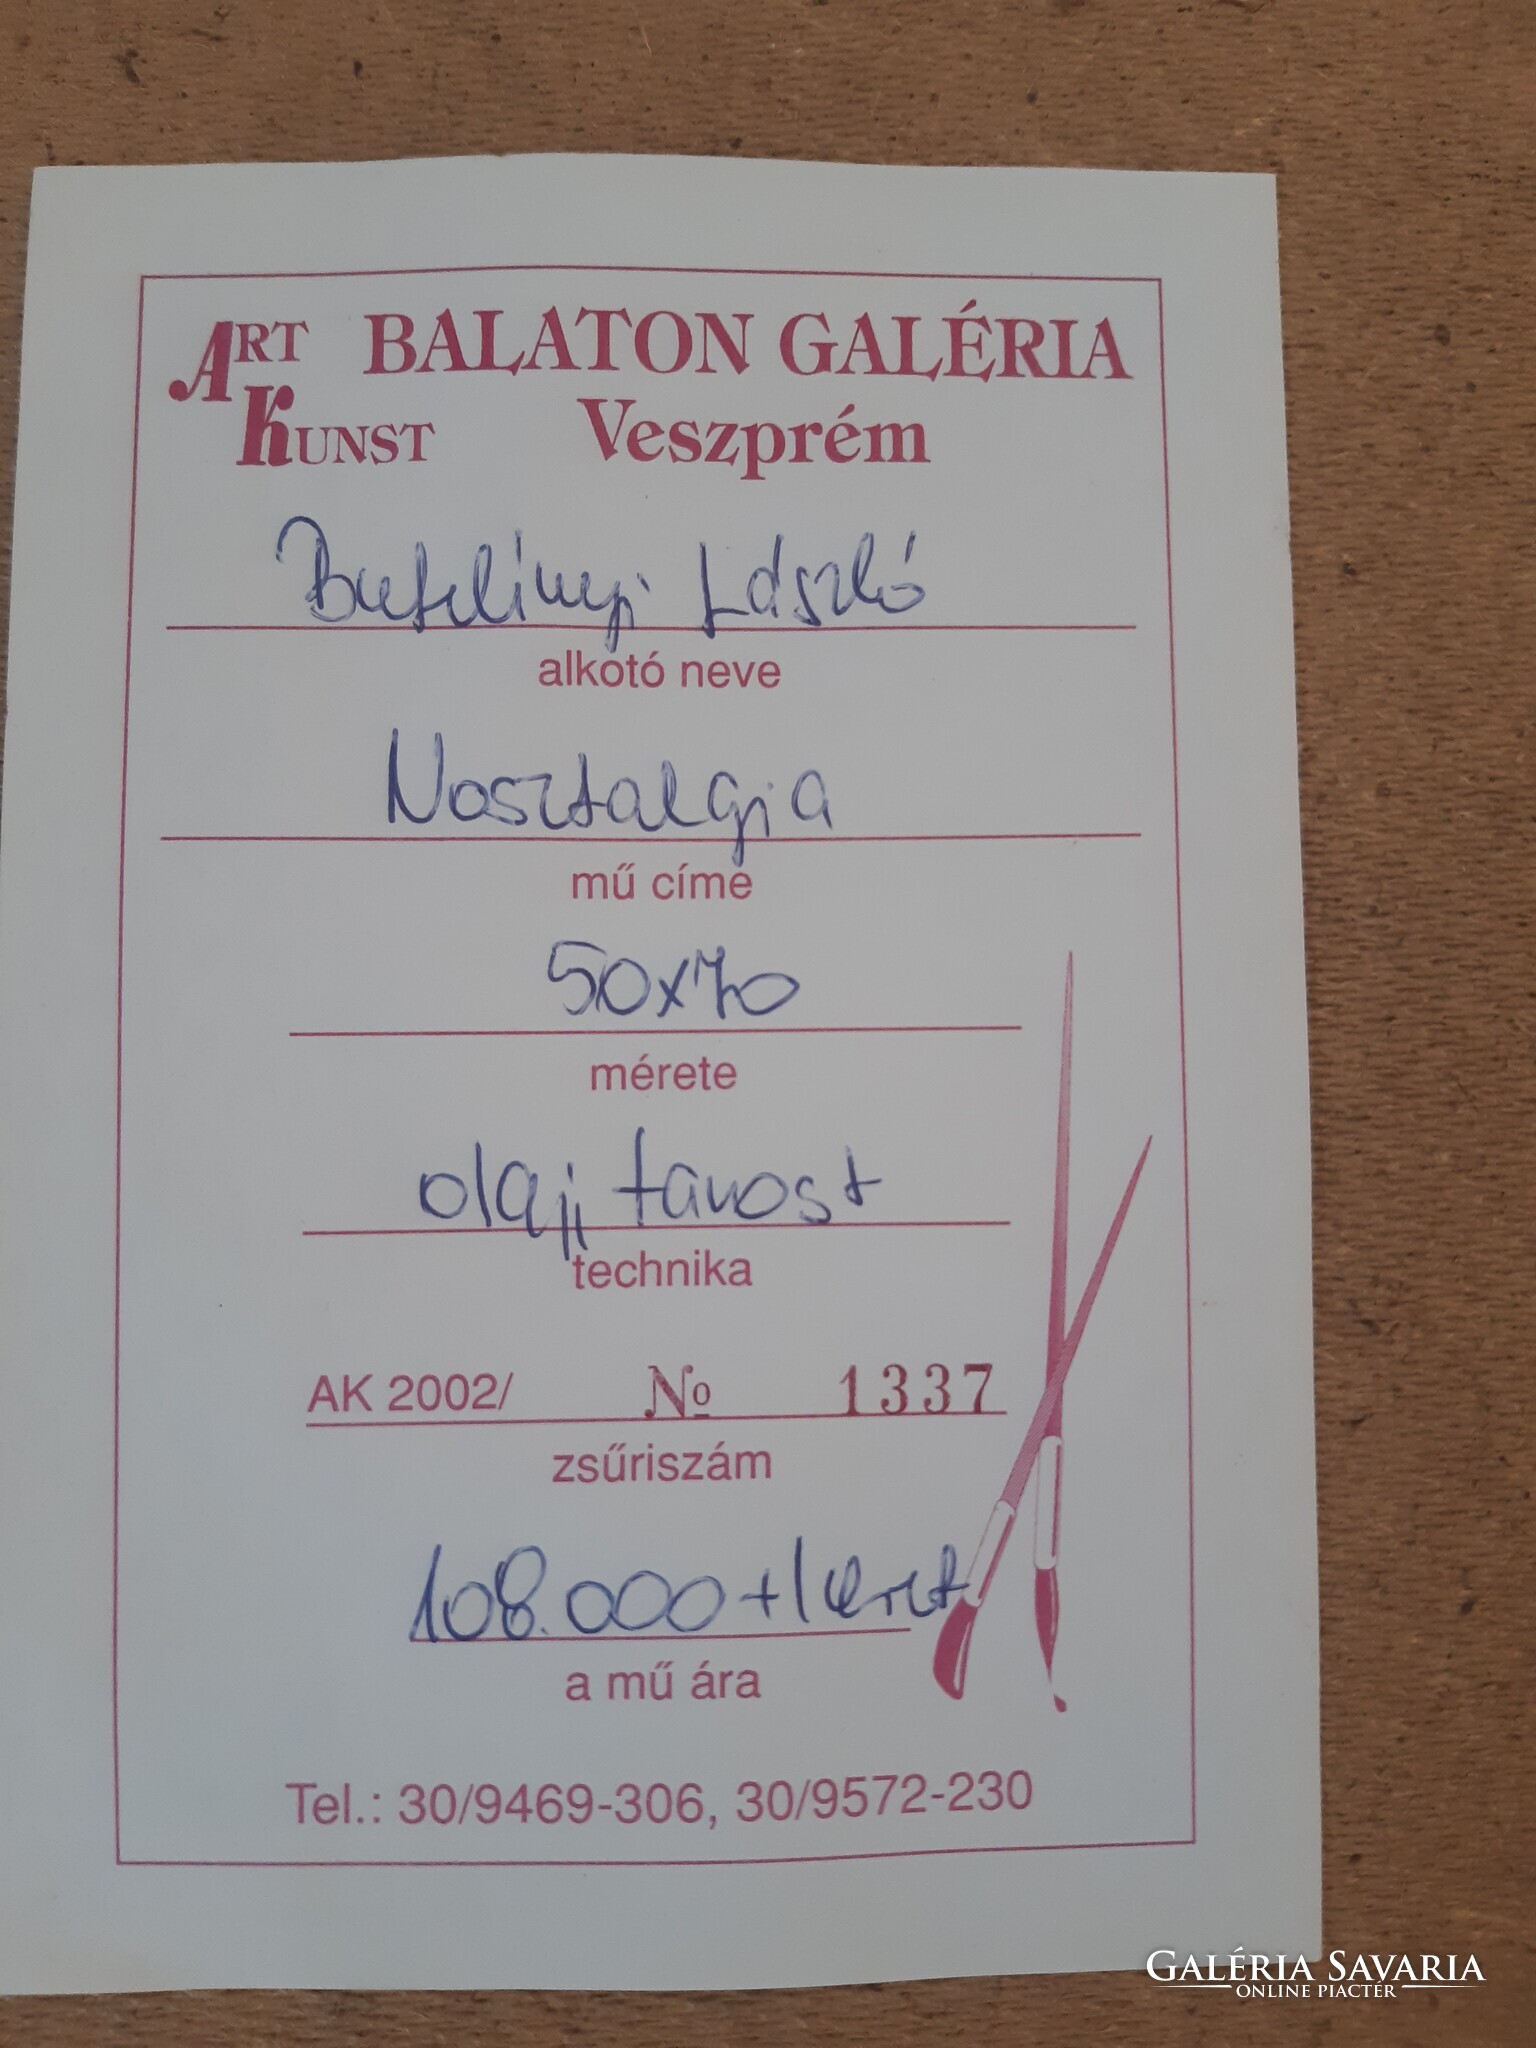 ART BALATON GALÉRIA
KUNST Veszprém
László
alkotó neve
Nosztalgia
mű címe
50x70
mérete
olaj, farost
technika
AK 2002/ № 1337
zsűriszám
108.000 + keret
a mű ára
Tel.: 30/9469-306, 30/9572-230
GALÉRIA SAVARIA
ONLINE PIACTÉR